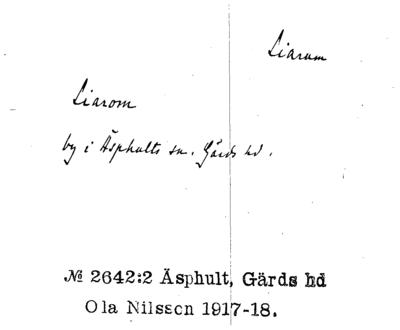 Liarum
Liarom
by i Äsphults sn. Gärds hd.
№ 2642:2 Äsphult, Gärds hd
Ola Nilsson 1917-18.